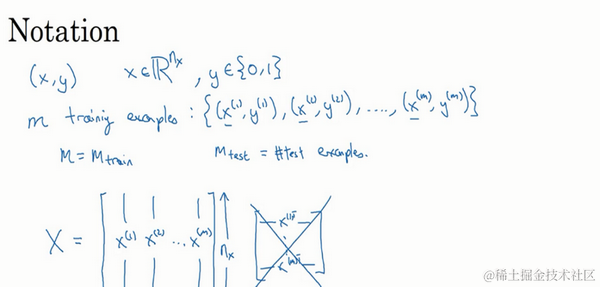 Notation
(x,y) x∈ℝ^{n_x}, y∈{0,1}
m training examples : {(x^{(1)},y^{(1)}), (x^{(2)},y^{(2)}), ...., (x^{(m)},y^{(m)})}
M = M_{train} M_{test} = #test examples.
X = [x^{(1)} x^{(2)} ... x^{(m)}] n_x
x^{(1)T}
x^{(m)T}
@稀土掘金技术社区